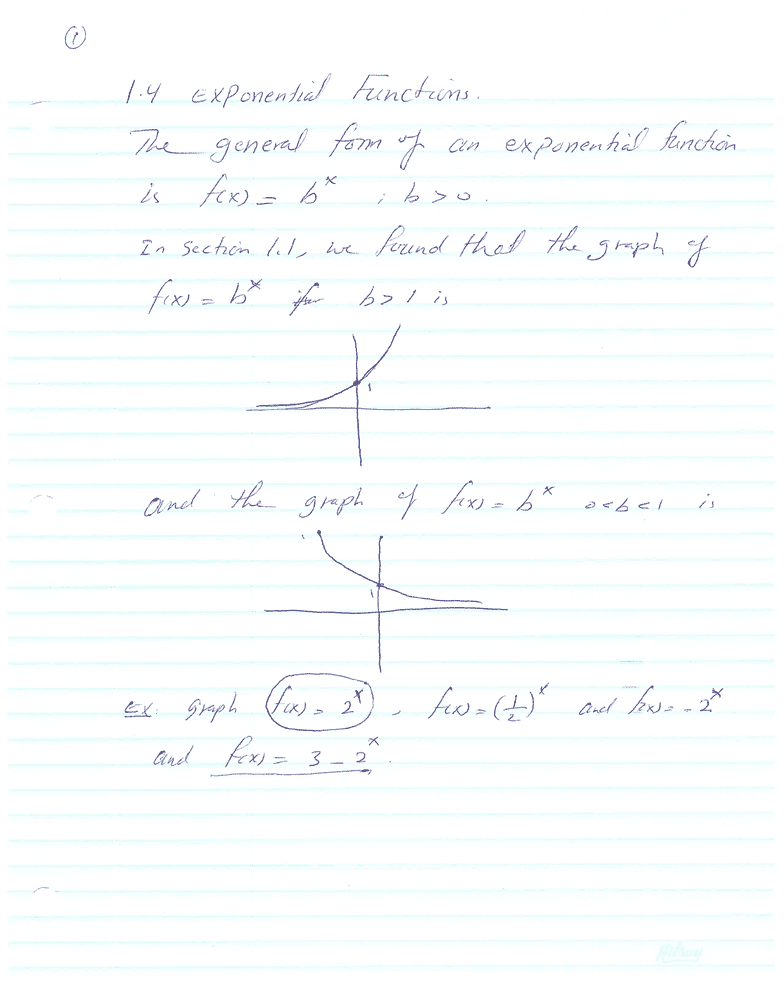 ①
1.4 Exponential Functions.
The general form of an exponential function
is f(x) = b^x ; b > 0.
In section 1.1, we found that the graph of
f(x) = b^x for b > 1 is
1
and the graph of f(x) = b^x 0 < b < 1 is
1
Ex: graph f(x) = 2^x, f(x) = (1/2)^x and f(x) = -2^x
and f(x) = 3 - 2^x.